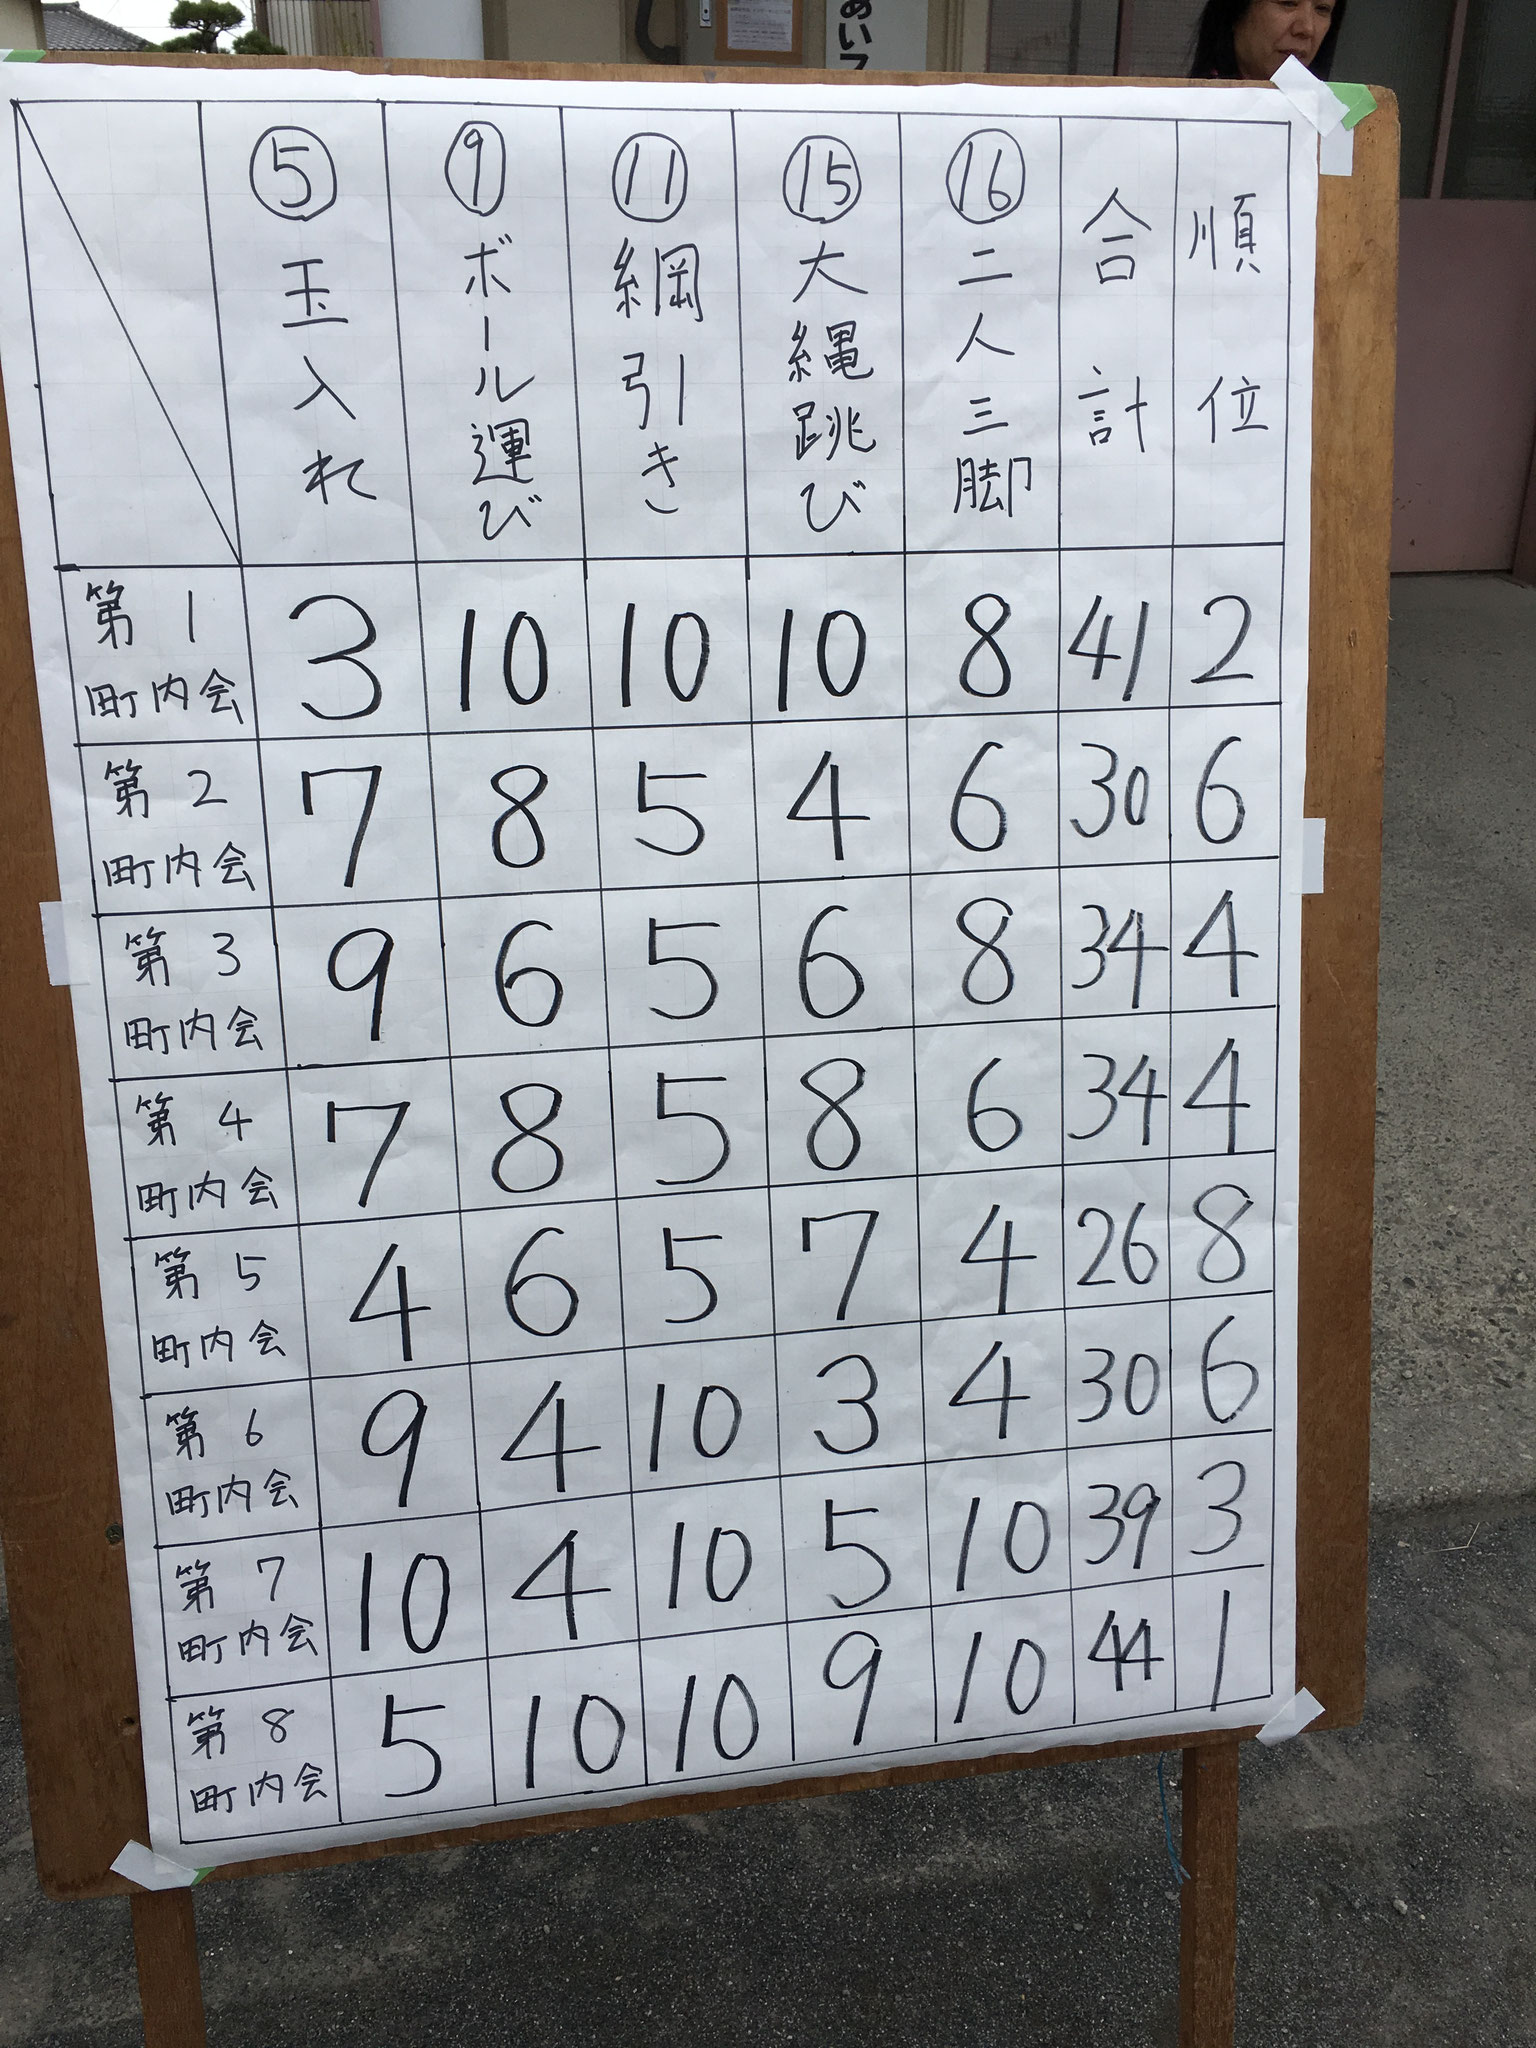 あいフ
⑤玉入れ ⑨ボール運び ⑪綱引き ⑮大縄跳び ⑯二人三脚 合計 順位
第1町内会 3 10 10 10 8 41 2
第2町内会 7 8 5 4 6 30 6
第3町内会 9 6 5 6 8 34 4
第4町内会 7 8 5 8 6 34 4
第5町内会 4 6 5 7 4 26 8
第6町内会 9 4 10 3 4 30 6
第7町内会 10 4 10 5 10 39 3
第8町内会 5 10 10 9 10 44 1